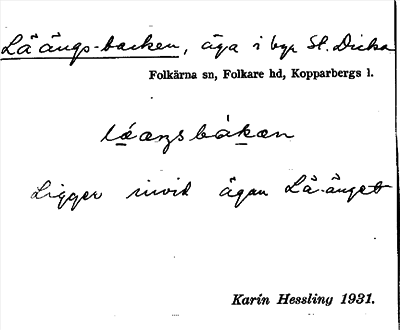 Låängs-backen, äga i byn St. Dicka
Folkärna sn, Folkare hd, Kopparbergs l.
Ligger invid ägan Lå-änget
Karin Hessling 1931.